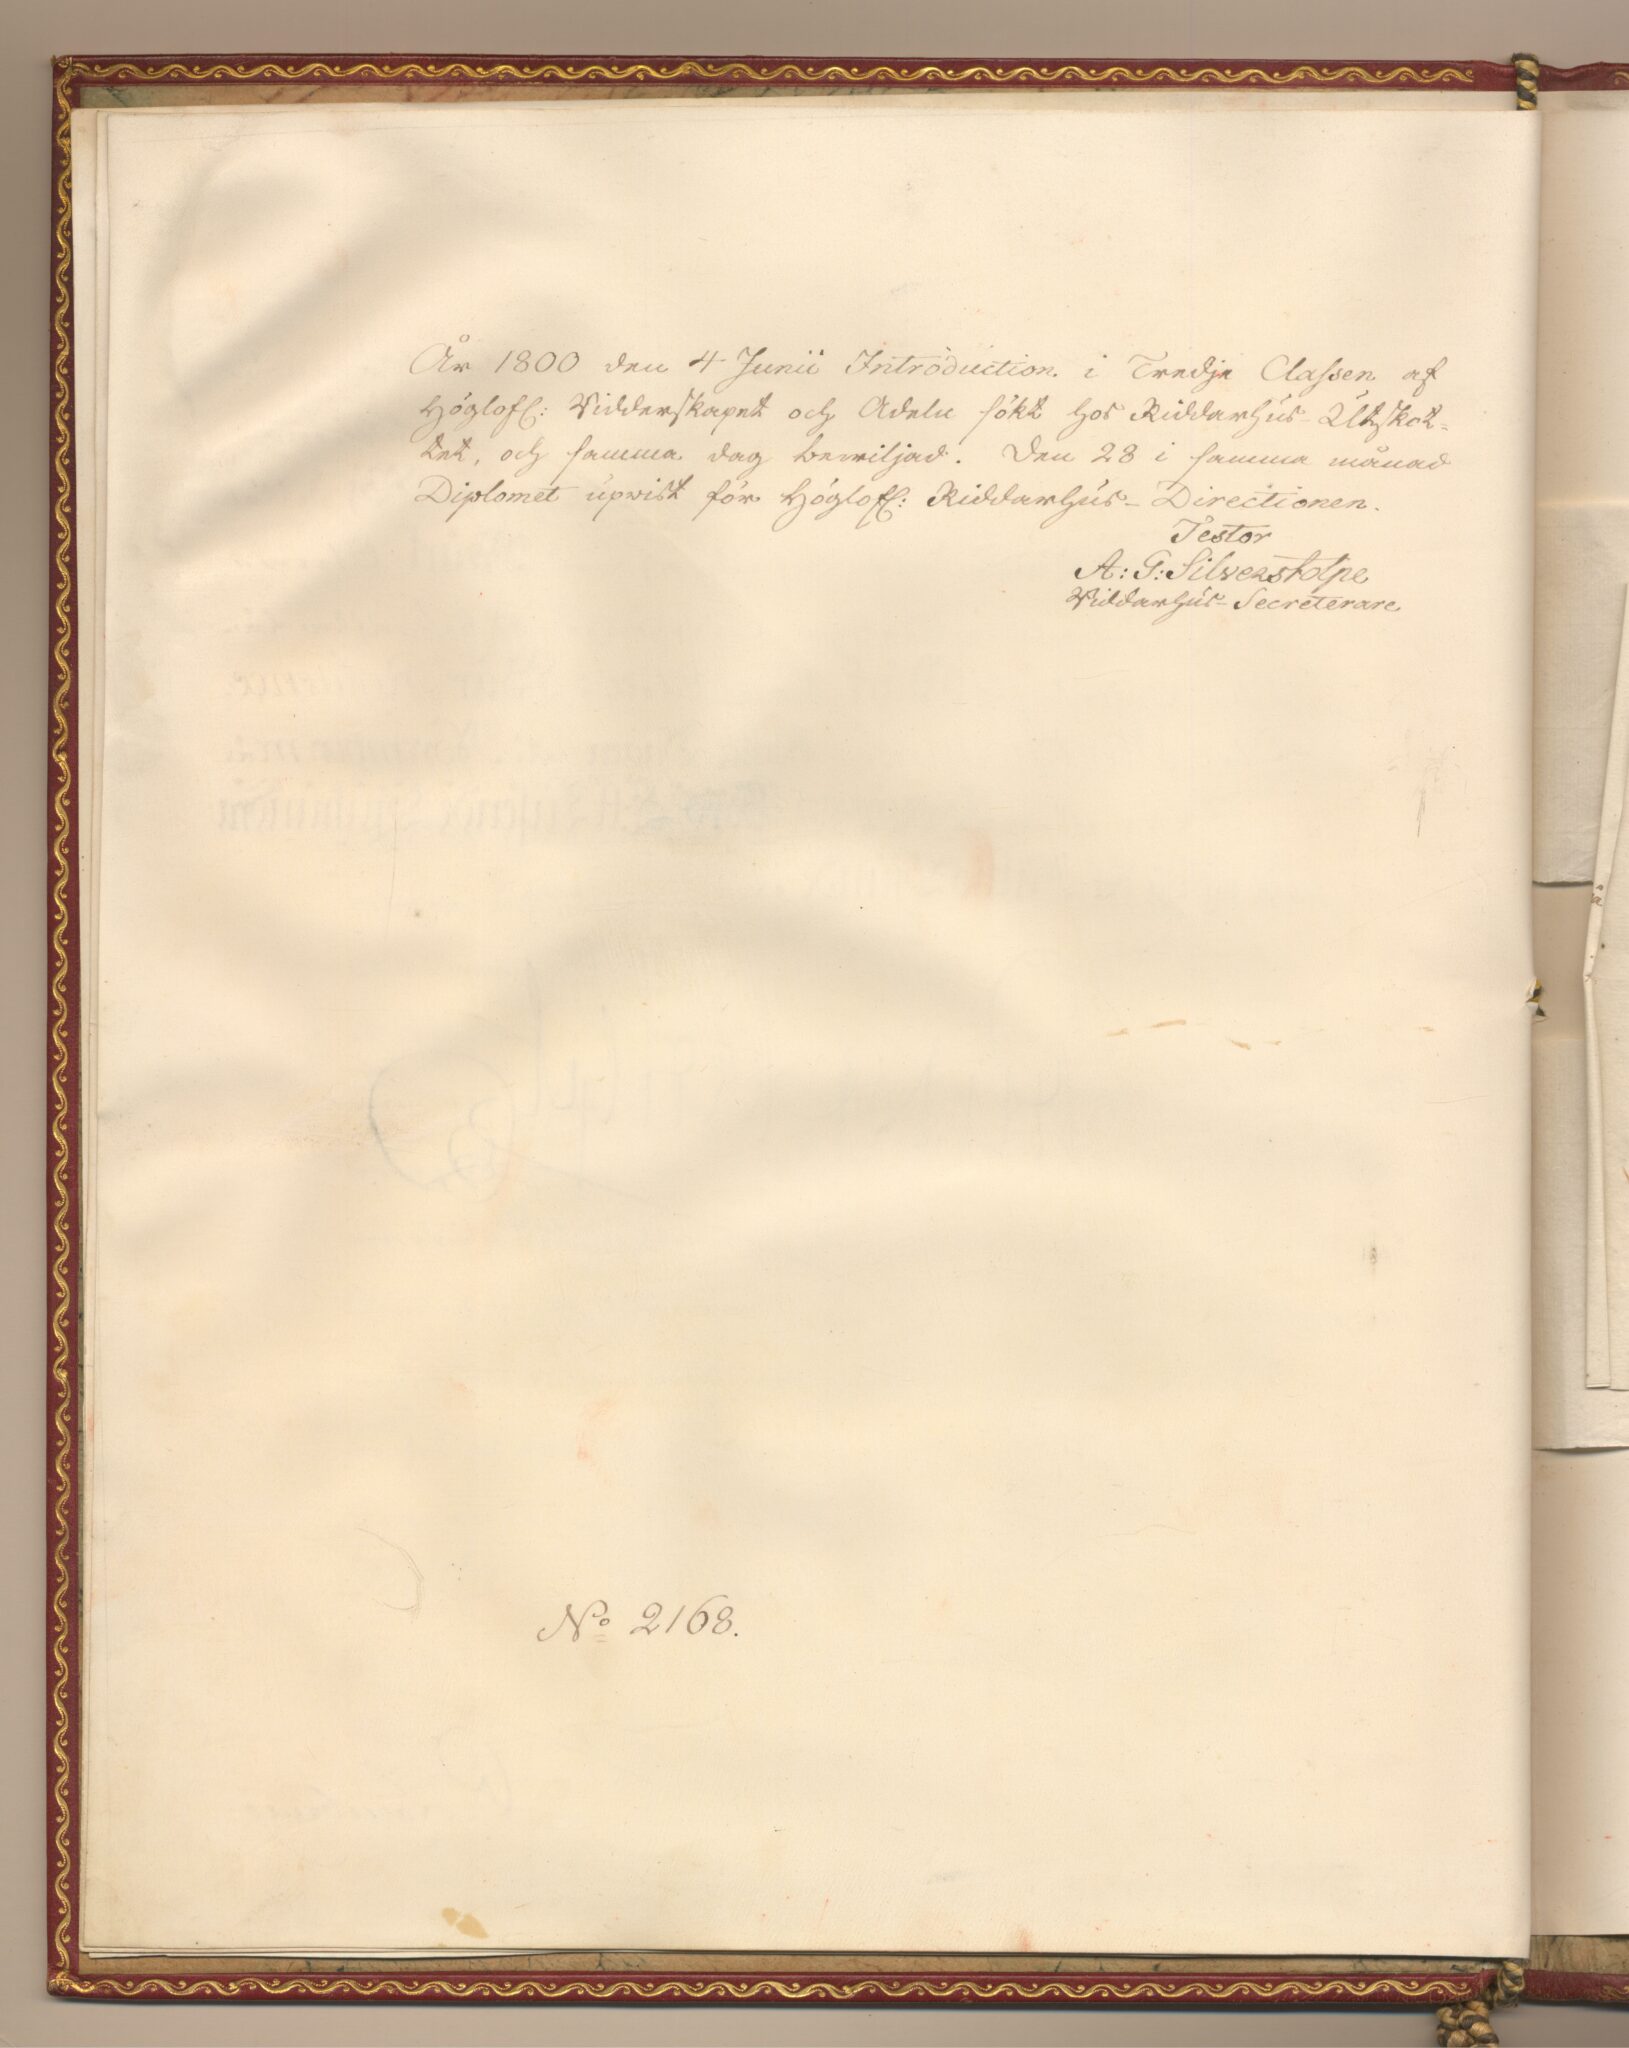 År 1800 den 4 Junii Introduction i Tredje Classen af
Höglofl: Ridderskapet och Adeln sökt hos Riddarhus-Utskot-
tet, och samma dag bewiljad. Den 28 i samma månad
Diplomet upwist för Höglofl: Riddarhus-Directionen.
Testor
A: G: Silverstolpe
Riddarhus-Secreterare
No 2168.